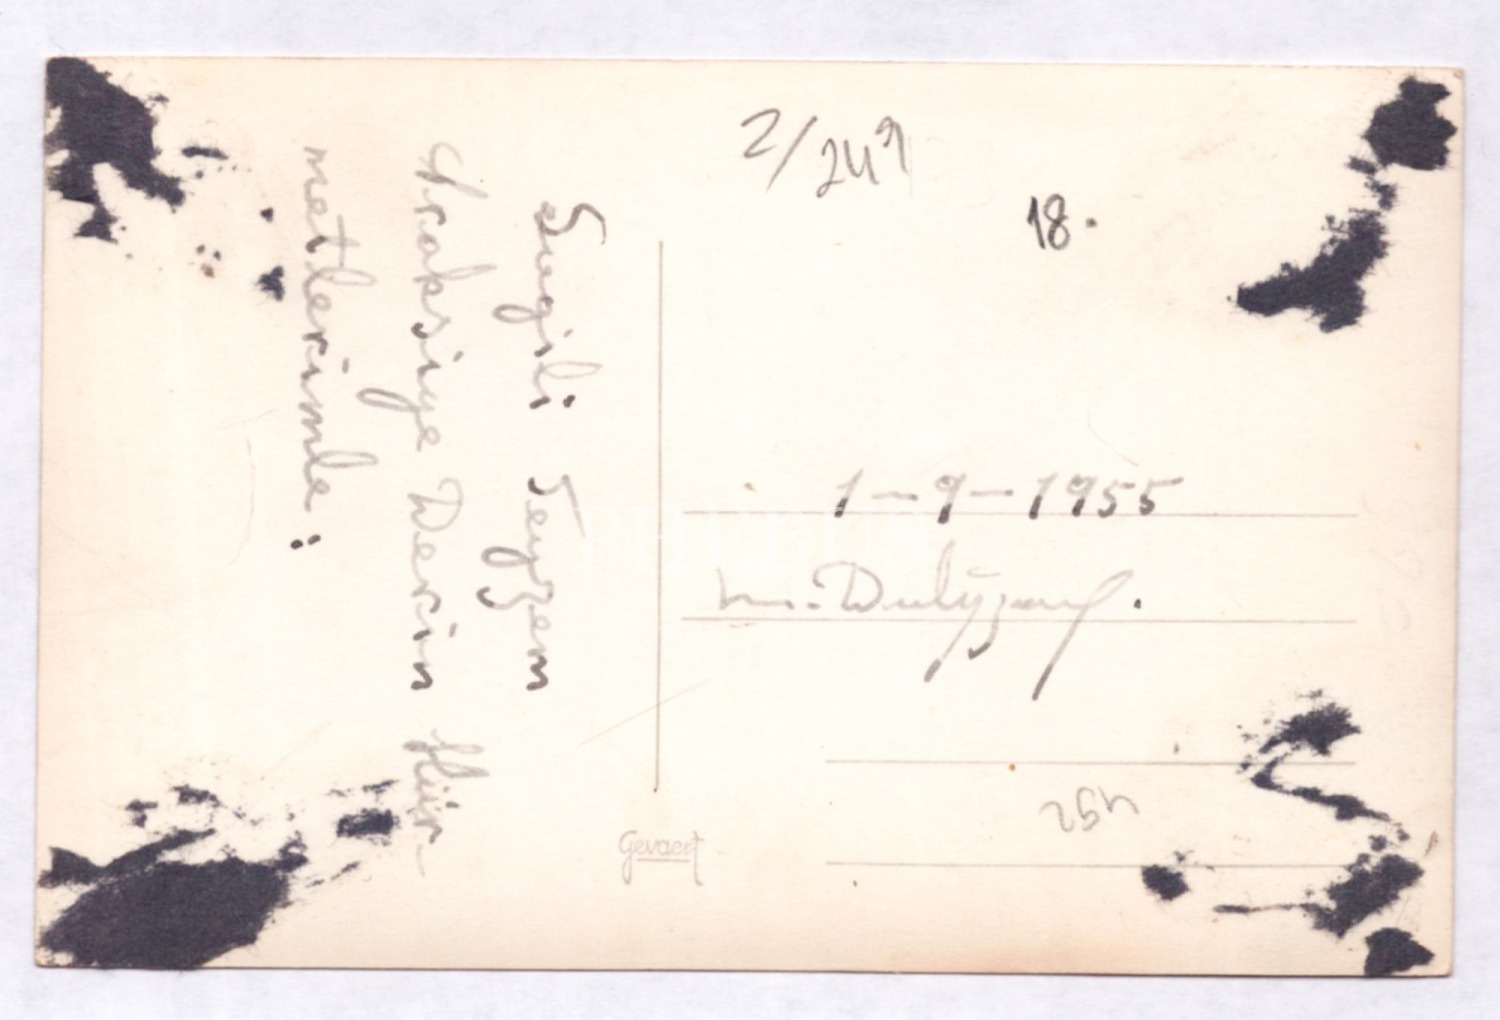 Sevgili Teyzem
Araksiye Derin Hür-
metlerimle:
2/249
18.
1-9-1955
254
Gevaert
PHEBUS